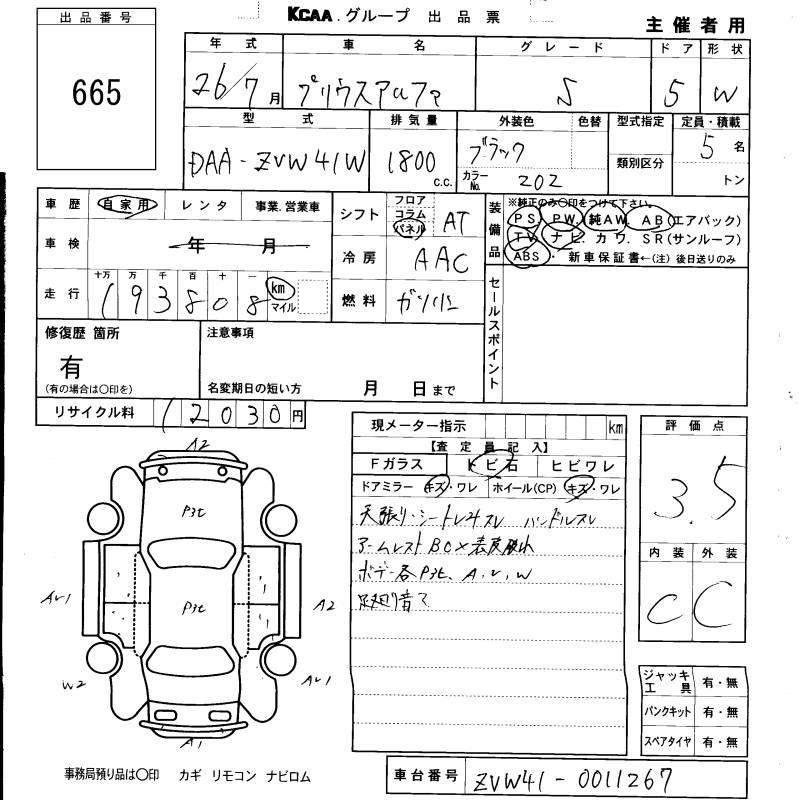 KCAA グループ 出品票
主催者用
出品番号
665
年式 車名 グレード ドア 形状
26/7月 プリウスアルファ S 5 W
型式 排気量 外装色 色替 型式指定 定員・積載
DAA-ZVW41W 1800 c.c. ブラック 類別区分 5名
カラーNo. 202 トン
車歴 自家用 レンタ 事業.営業車
車検 年 月
走行 十万 万 千 百 十 一
193808 km マイル
シフト フロア コラム パネル AT
冷房 AAC
燃料 ガソリン
装備品
※純正のみ〇印をつけて下さい。
PS. PW. 純AW. AB(エアバック)
TV. ナビ. カワ. SR(サンルーフ)
ABS・ 新車保証書←(注)後日送りのみ
セールスポイント
修復歴 箇所
有
(有の場合は〇印を)
注意事項
名変期日の短い方 月 日まで
リサイクル料 12030円
現メーター指示 km
【査定員記入】
Fガラス トビ石 ヒビワレ
ドアミラー キズ・ワレ ホイール(CP) キズ・ワレ
天張り・シートレ
スレ ハンドルスレ
アームレスト
ボデー各
A, U, W
足廻り音て
評価点
3.5
内装 外装
C C
A2
A2
W2
A1
ジャッキ工具 有・無
パンクキット 有・無
スペアタイヤ 有・無
事務局預り品は〇印 カギ リモコン ナビロム
車台番号 ZVW41-0011267